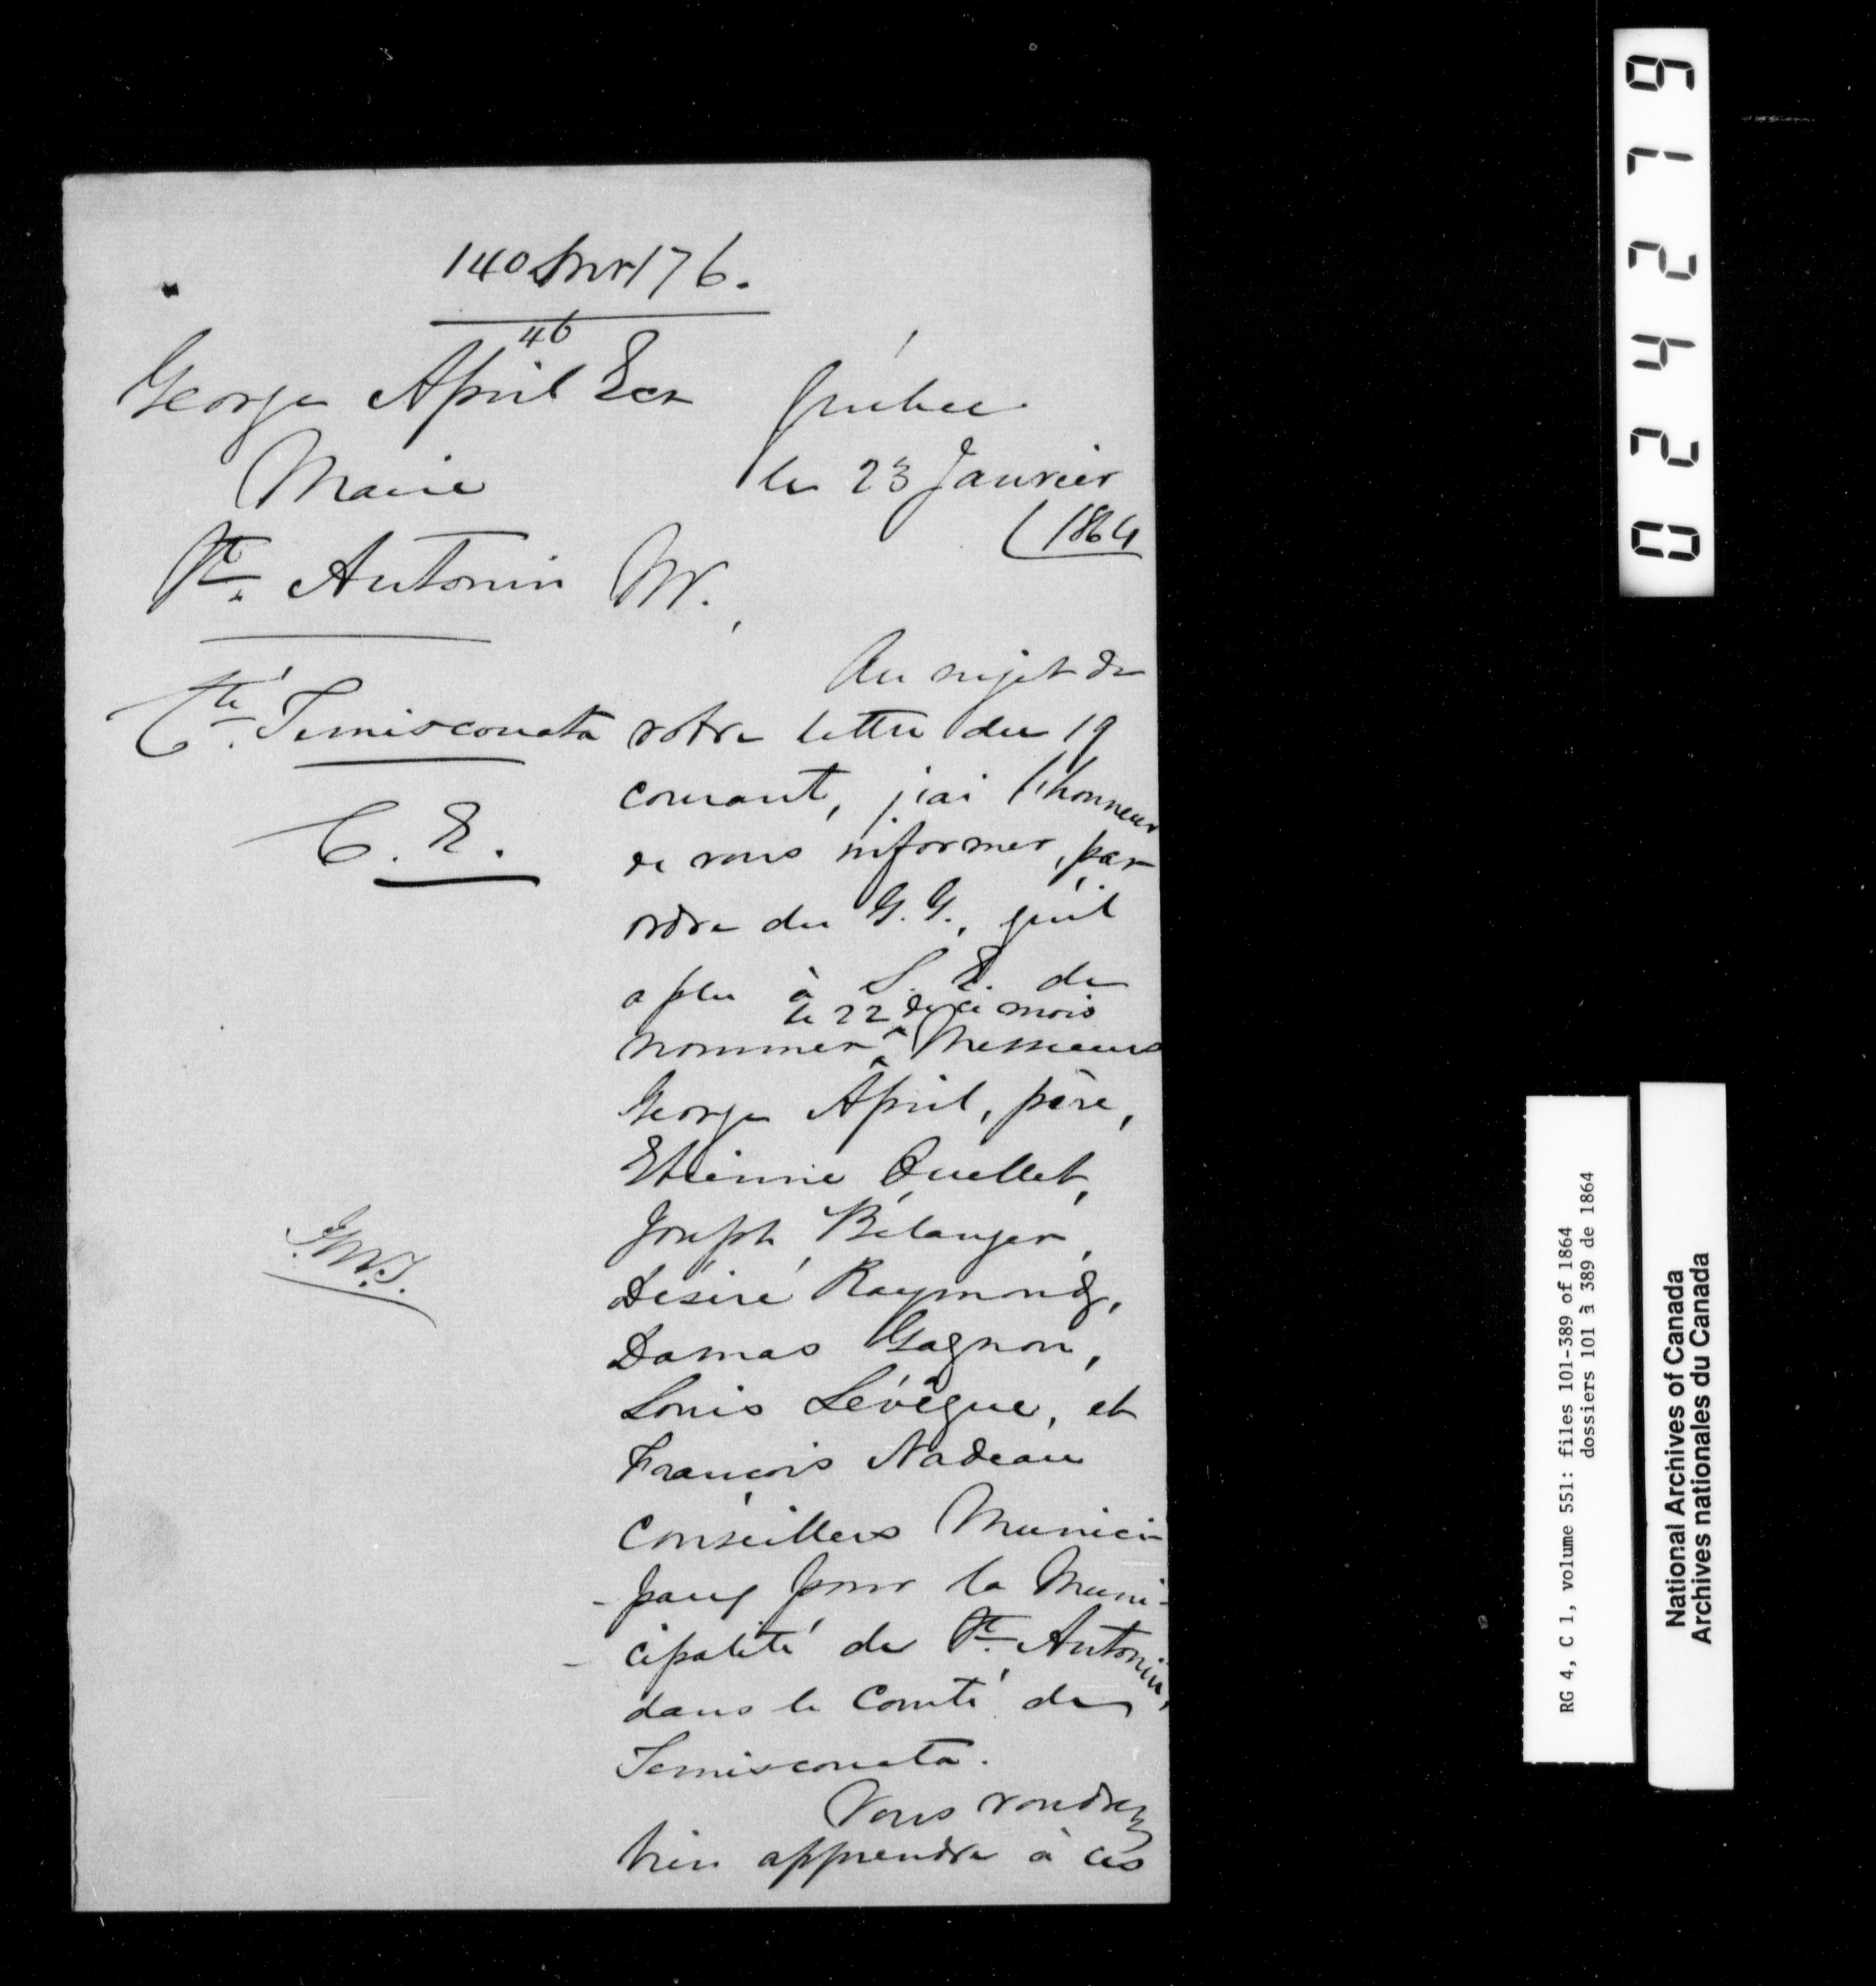 140 176.
46
George April Ecr
Maire
St. Antonin
Cté. Temiscouata
C. E.
Québec
le 23 Janvier
1864
M.,
Au sujet de
votre lettre du 19
courant, j'ai l'honneur
de vous informer, par
ordre du G. G., qu'il
a plu à S. E. de
le 22 de ce mois
nommer ^ Messieurs
George April, père,
Etienne Ouellet,
Joseph Bélanger,
Désiré Raymond,
Damas Gagnon,
Louis Lévêque, et
François Nadeau
Conseillers Munici-
-paux pour la Muni-
-cipalité de St. Antonin,
dans le Comté de
Temiscouata.
Vous voudrez
bien apprendre à ces
024279
RG 4, C 1, volume 551: files 101-389 of 1864
dossiers 101 à 389 de 1864
National Archives of Canada
Archives nationales du Canada